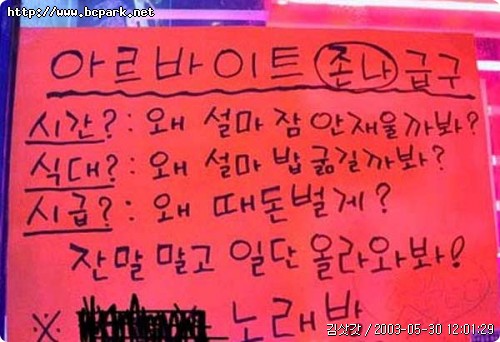 http://www.bcpark.net
아르바이트 존나 급구
시간?: 왜 설마 잠 안재울까봐?
식대?: 왜 설마 밥 굶길까봐?
시급?: 왜 때돈벌게?
잔말 말고 일단 올라와봐!
※ 노래방
김삿갓 / 2003-05-30 12:01:29